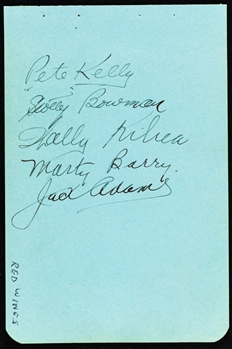 Pete Kelly
"Scotty" Bowman
Wally Kilrea
Marty Barry
Jack Adams
RED WINGS